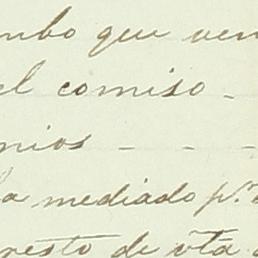 mbo que ven
el comiso -
nios - - -
la mediado p.r
resto de vta